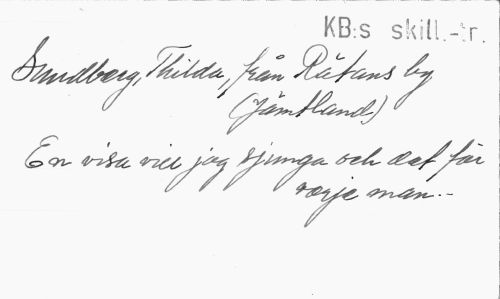 KB:s skill.-tr.
Sundberg, Thilda, från Rätans by
(Jämtland)
En visa vill jag sjunga och det för
varje man.-